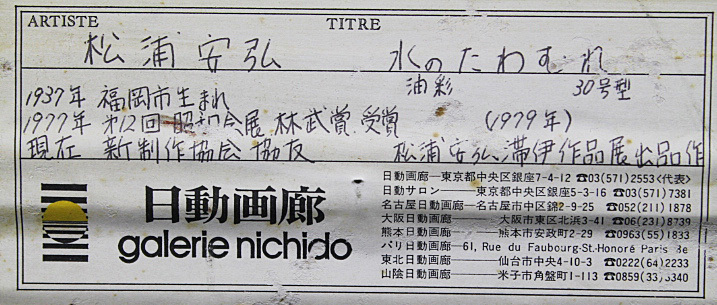 ARTISTE TITRE
松浦安弘 水のたわむれ
油彩 30号型
1937年 福岡市生まれ
1977年 第12回 昭和会展 林武賞 受賞 (1979年)
現在 新制作協会 協友 松浦安弘 滞伊作品展出品作
日動画廊
galerie nichido
日動画廊—東京都中央区銀座7-4-12 ☎03(571)2553<代表>
日動サロン—東京都中央区銀座5-3-16 ☎03(571)7381
名古屋日動画廊—名古屋市中区錦2-9-25 ☎052(211)1878
大阪日動画廊—大阪市東区北浜3-41 ☎06(231)8739
熊本日動画廊—熊本市安政町2-29 ☎0963(55)1833
パリ日動画廊—61, Rue du Faubourg-St-Honoré Paris 8e
東北日動画廊—仙台市中央4-10-3 ☎0222(64)2233
山陰日動画廊—米子市角盤町1-113 ☎0859(33)5340